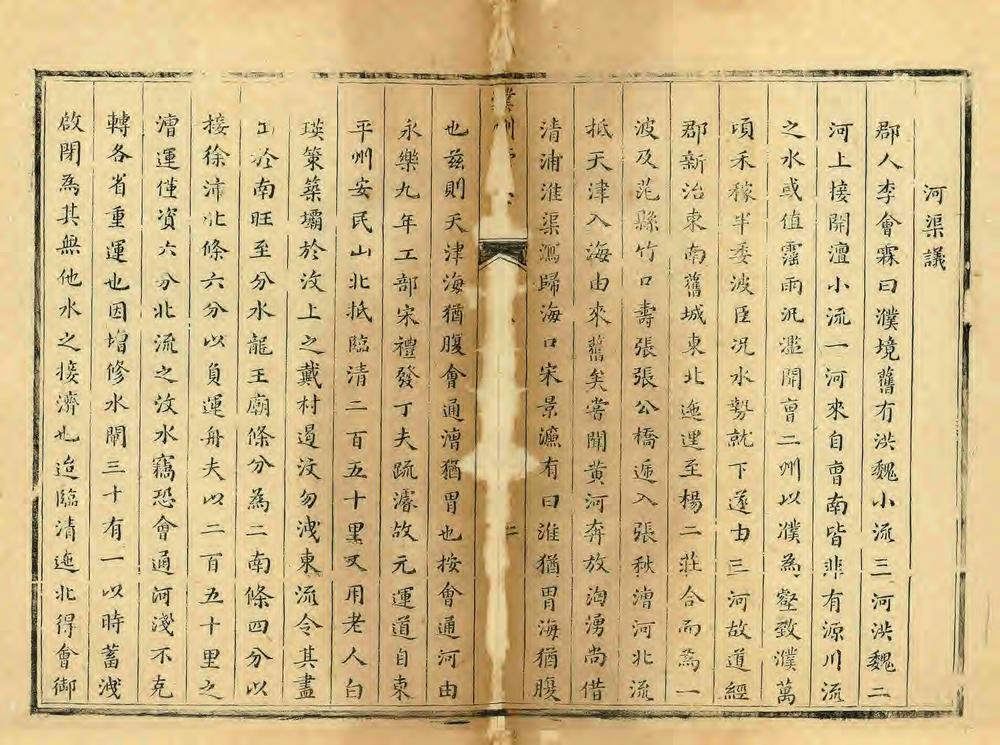 河渠議
郡人李會霖曰濮境舊有洪魏小流三河洪魏二
河上接開澶小流一河來自曹南皆非有源川流
之水或值霪雨汎濫開曹二州以濮為壑致濮萬
頃禾稼半委波臣况水勢就下遂由三河故道經
郡新治東南舊城東北迤逶至楊二莊合而為一
波及范縣竹口壽張張公橋逓入張秋漕河北流
抵天津入海由來舊矣嘗聞黄河奔放洶湧尚借
清浦淮渠瀉歸海口宋景濂有曰淮猶胃海猶腹
濮州
二
也兹則天津海猶腹會通漕猶胃也按會通河由
永樂九年工部宋禮發丁夫疏濬故元運道自東
平州安民山北抵臨清二百五十里又用老人白
瑛策築壩於汶上之戴村遏汶勿洩東流令其盡
出於南旺至分水龍王廟條分為二南條四分以
接徐沛北條六分以負運舟夫以二百五十里之
漕運僅資六分北流之汶水竊恐會通河淺不克
轉各省重運也因增修水閘三十有一以時蓄洩
啟閉為其無他水之接濟也迨臨清迤北得會御